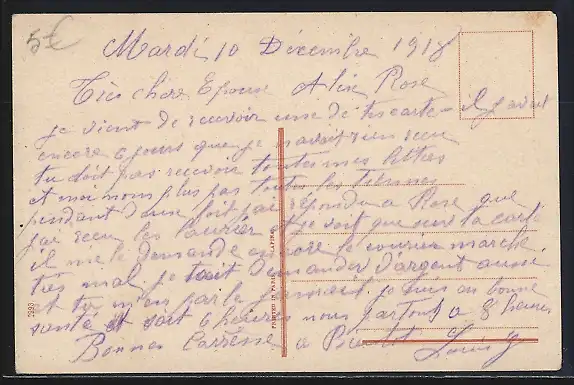 5€
Mardi 10 Décembre 1918
Très chère Epouse Alix Rose
je vient de recevoir une de tes carte il y avait
encore 6 jours que je n'avait rien reçu
tu doit pas recevoir toutes mes lettres
et moi non plus pas toutes les tiennes
pendant d'une foit j'ai répondu a Rose que
j'ai reçu les et je voit que sur ta carte
il me le demande encore le courier marche
très mal je t'ait demander d'argent aussi
et tu m'en parle jamais. je suis en bonne
santé et soit 6 heures nous partons a 8 heures
Bonnes Carresse a Louis
PRINTED IN
2293